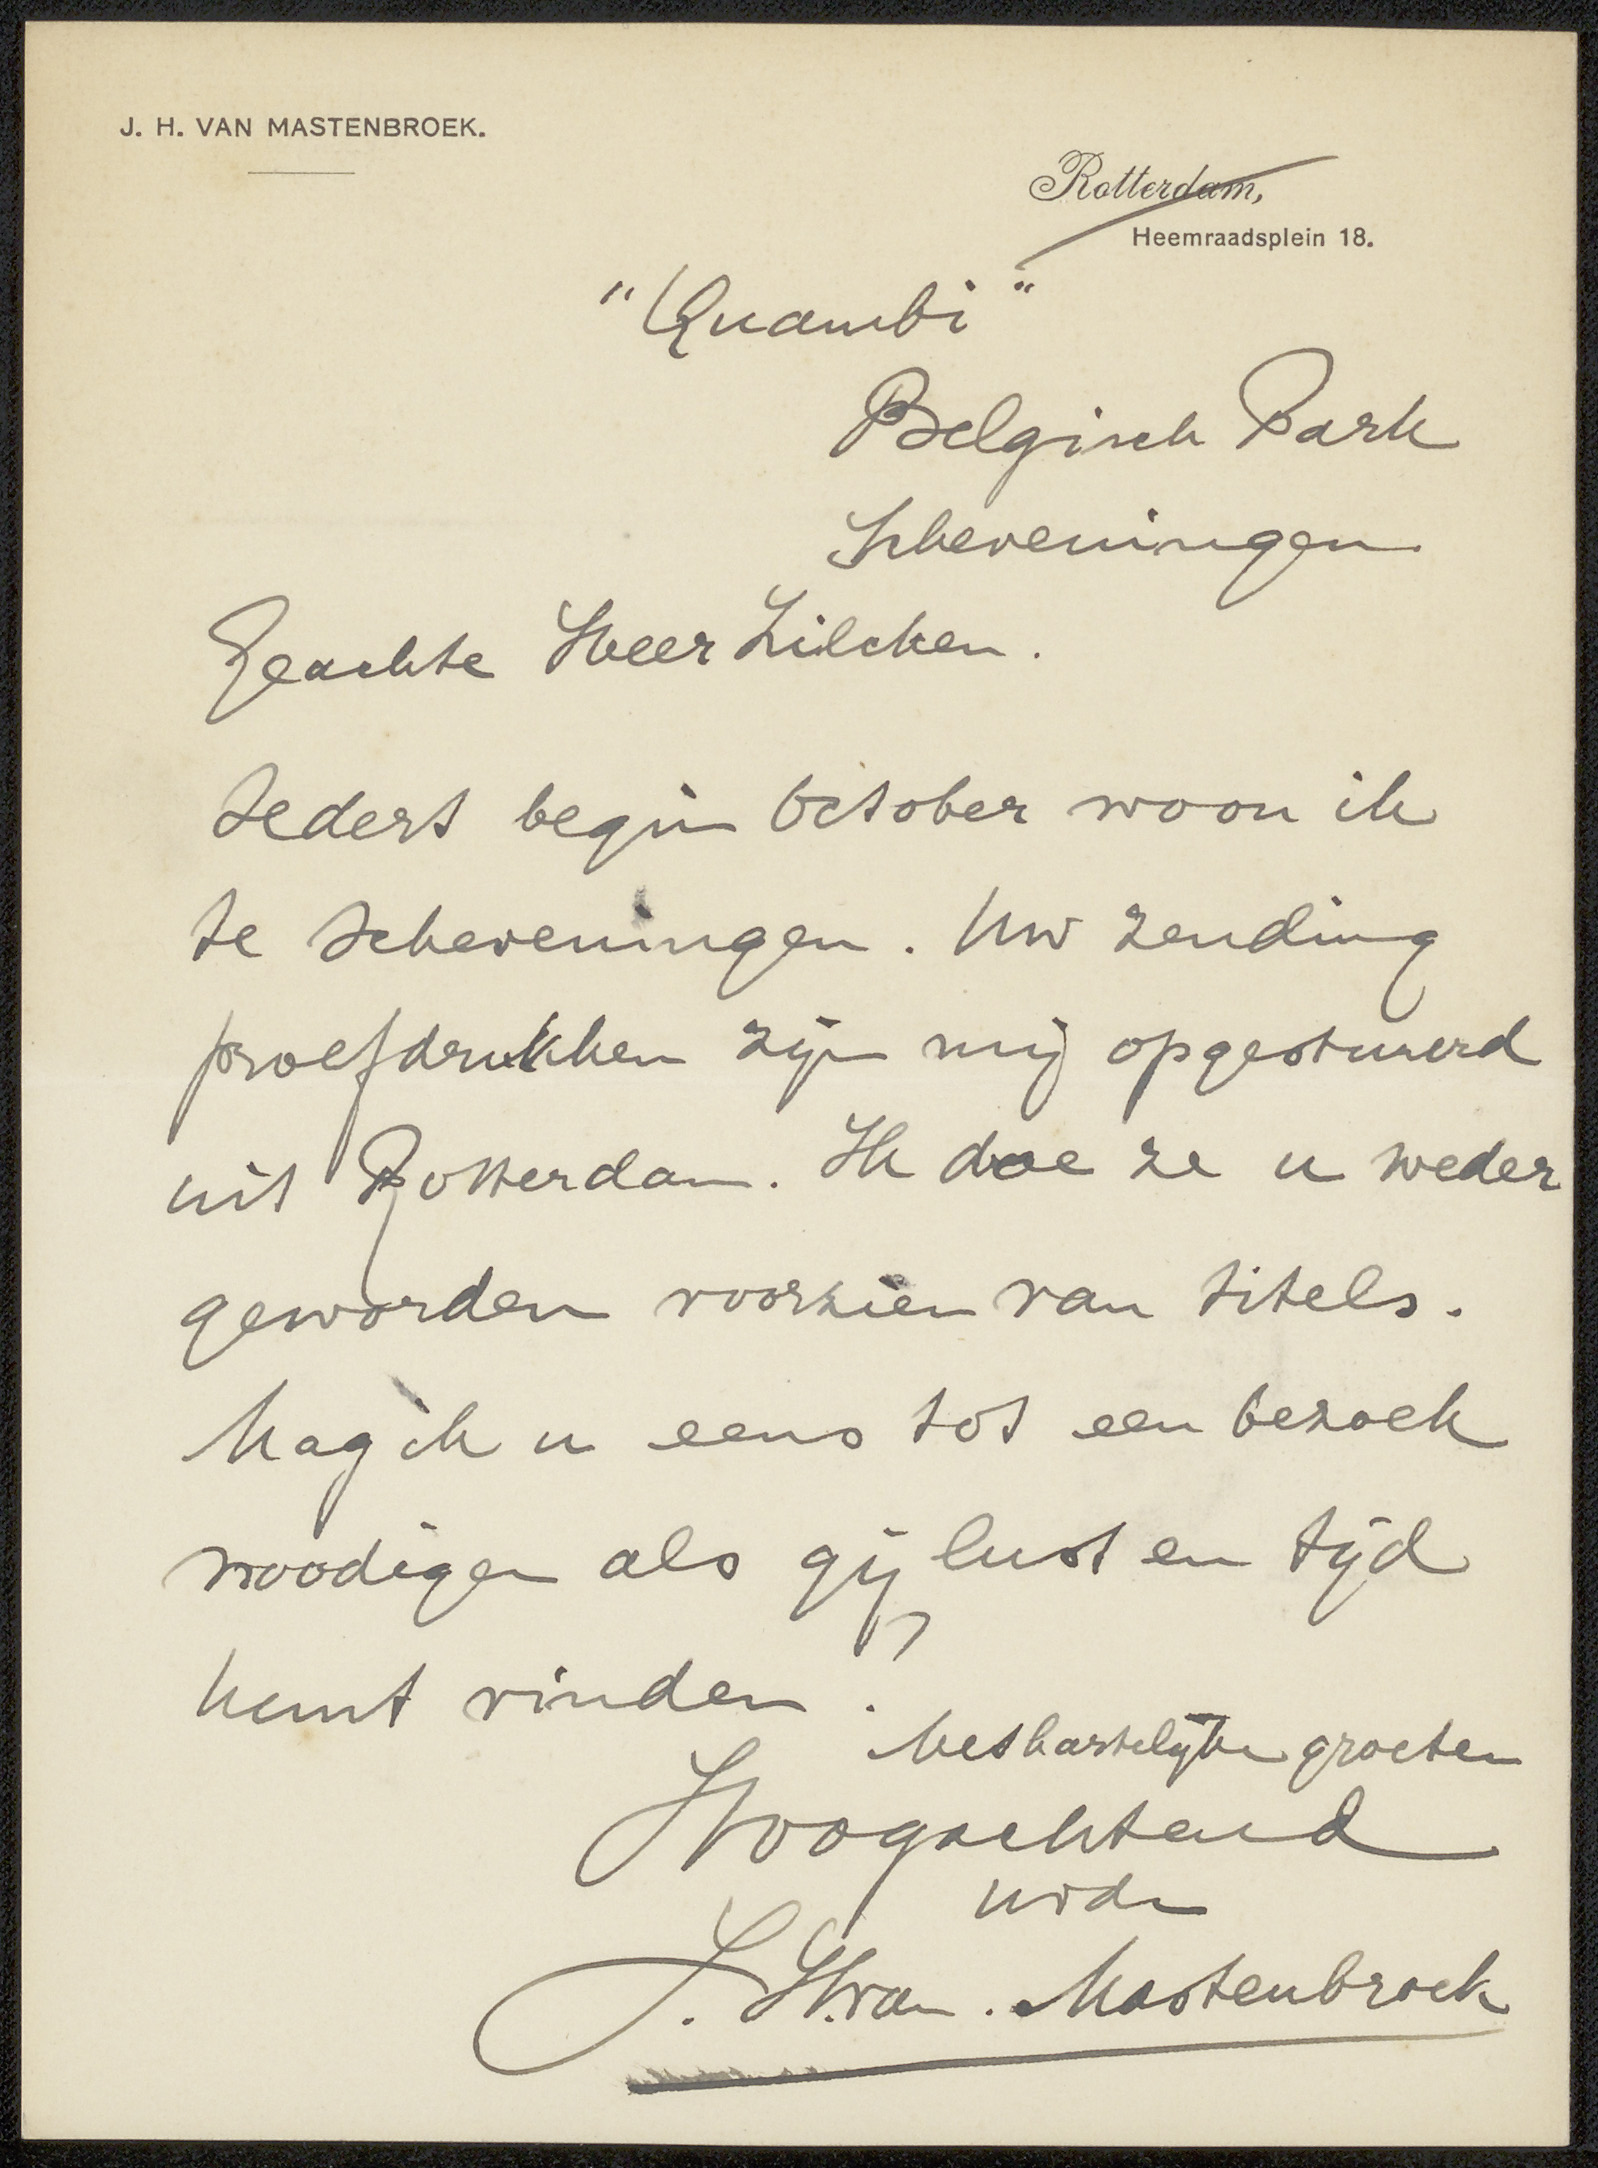 J. H. VAN MASTENBROEK.
Rotterdam,
Heemraadsplein 18.
"Quambi"
Belgisch Park
Scheveningen
Geachte Heer Zilcken.
Sedert begin October woon ik
te Scheveningen. Uw zending
proefdrukken zijn mij opgestuurd
uit Rotterdam. Ik doe ze u weder
geworden voorzien van titels.
Mag ik u eens tot een bezoek
noodigen als gij lust en tijd
kunt vinden?
Met hartelijke groeten
Hoogachtend
uwdn
J. H. van Mastenbroek